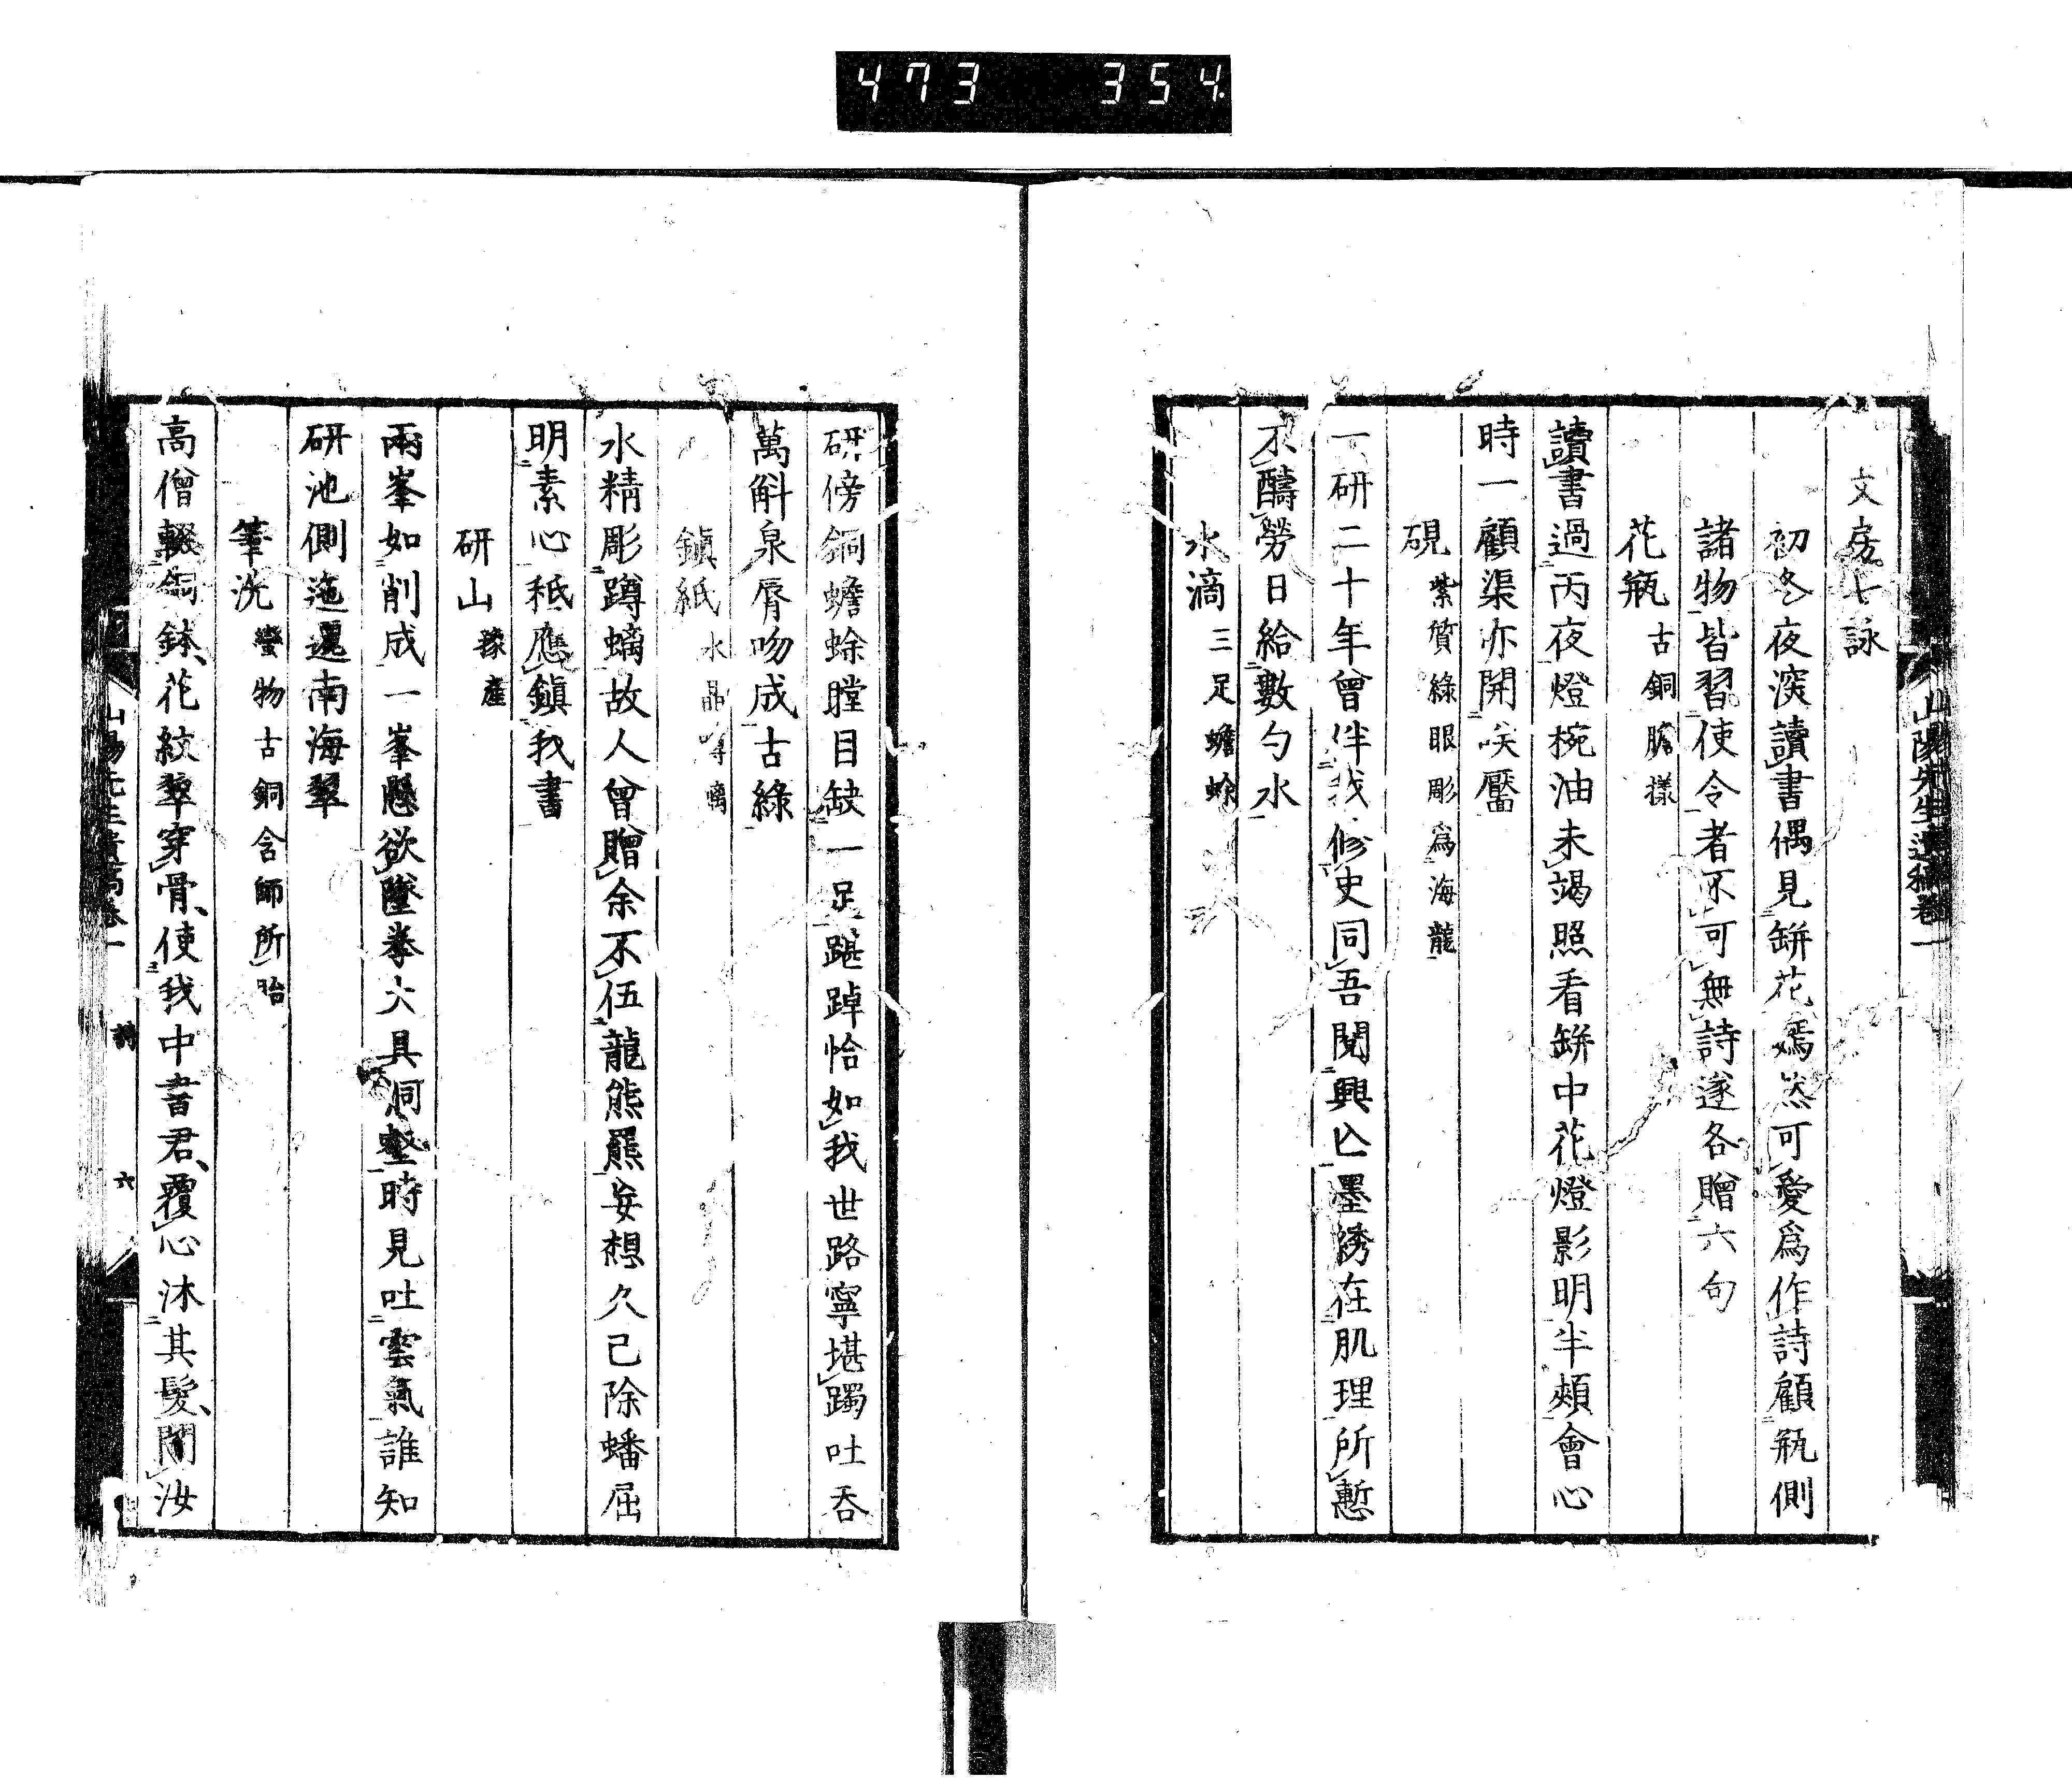 473 354
山陽先生遺稿卷一
文房七詠
初冬夜深讀書偶見缾花嫣然可愛爲作詩顧瓶側
諸物皆習使令者不可無詩遂各贈六句
花瓶 古銅膽樣
讀書過丙夜燈椀油未竭照看缾中花燈影明半頰會心
時一顧渠亦開咲靨
硯 紫質綠眼彫爲海龍
一研二十年曾伴我修史同吾閱興亡墨綉在肌理所慙
不醻勞日給數勺水
水滴 三足蟾蜍
研傍銅蟾蜍瞠目缺一足踸踔恰如我世路寧堪躅吐吞
萬斛泉脣吻成古綠
鎭紙 水晶蹲螭
水精彫蹲螭故人曾贈余不伍龍熊羆妄想久已除蟠屈
明素心秪應鎭我書
研山 豫產
兩峯如削成一峯懸欲墜拳大具洞壑時見吐雲氣誰知
研池側迤邐南海翠
筆洗 蠻物古銅含師所貽
高僧輟銅鉢花紋翠穿骨使我中書君覆心沐其髮閒汝
山陽先生遺稿卷一 詩 六